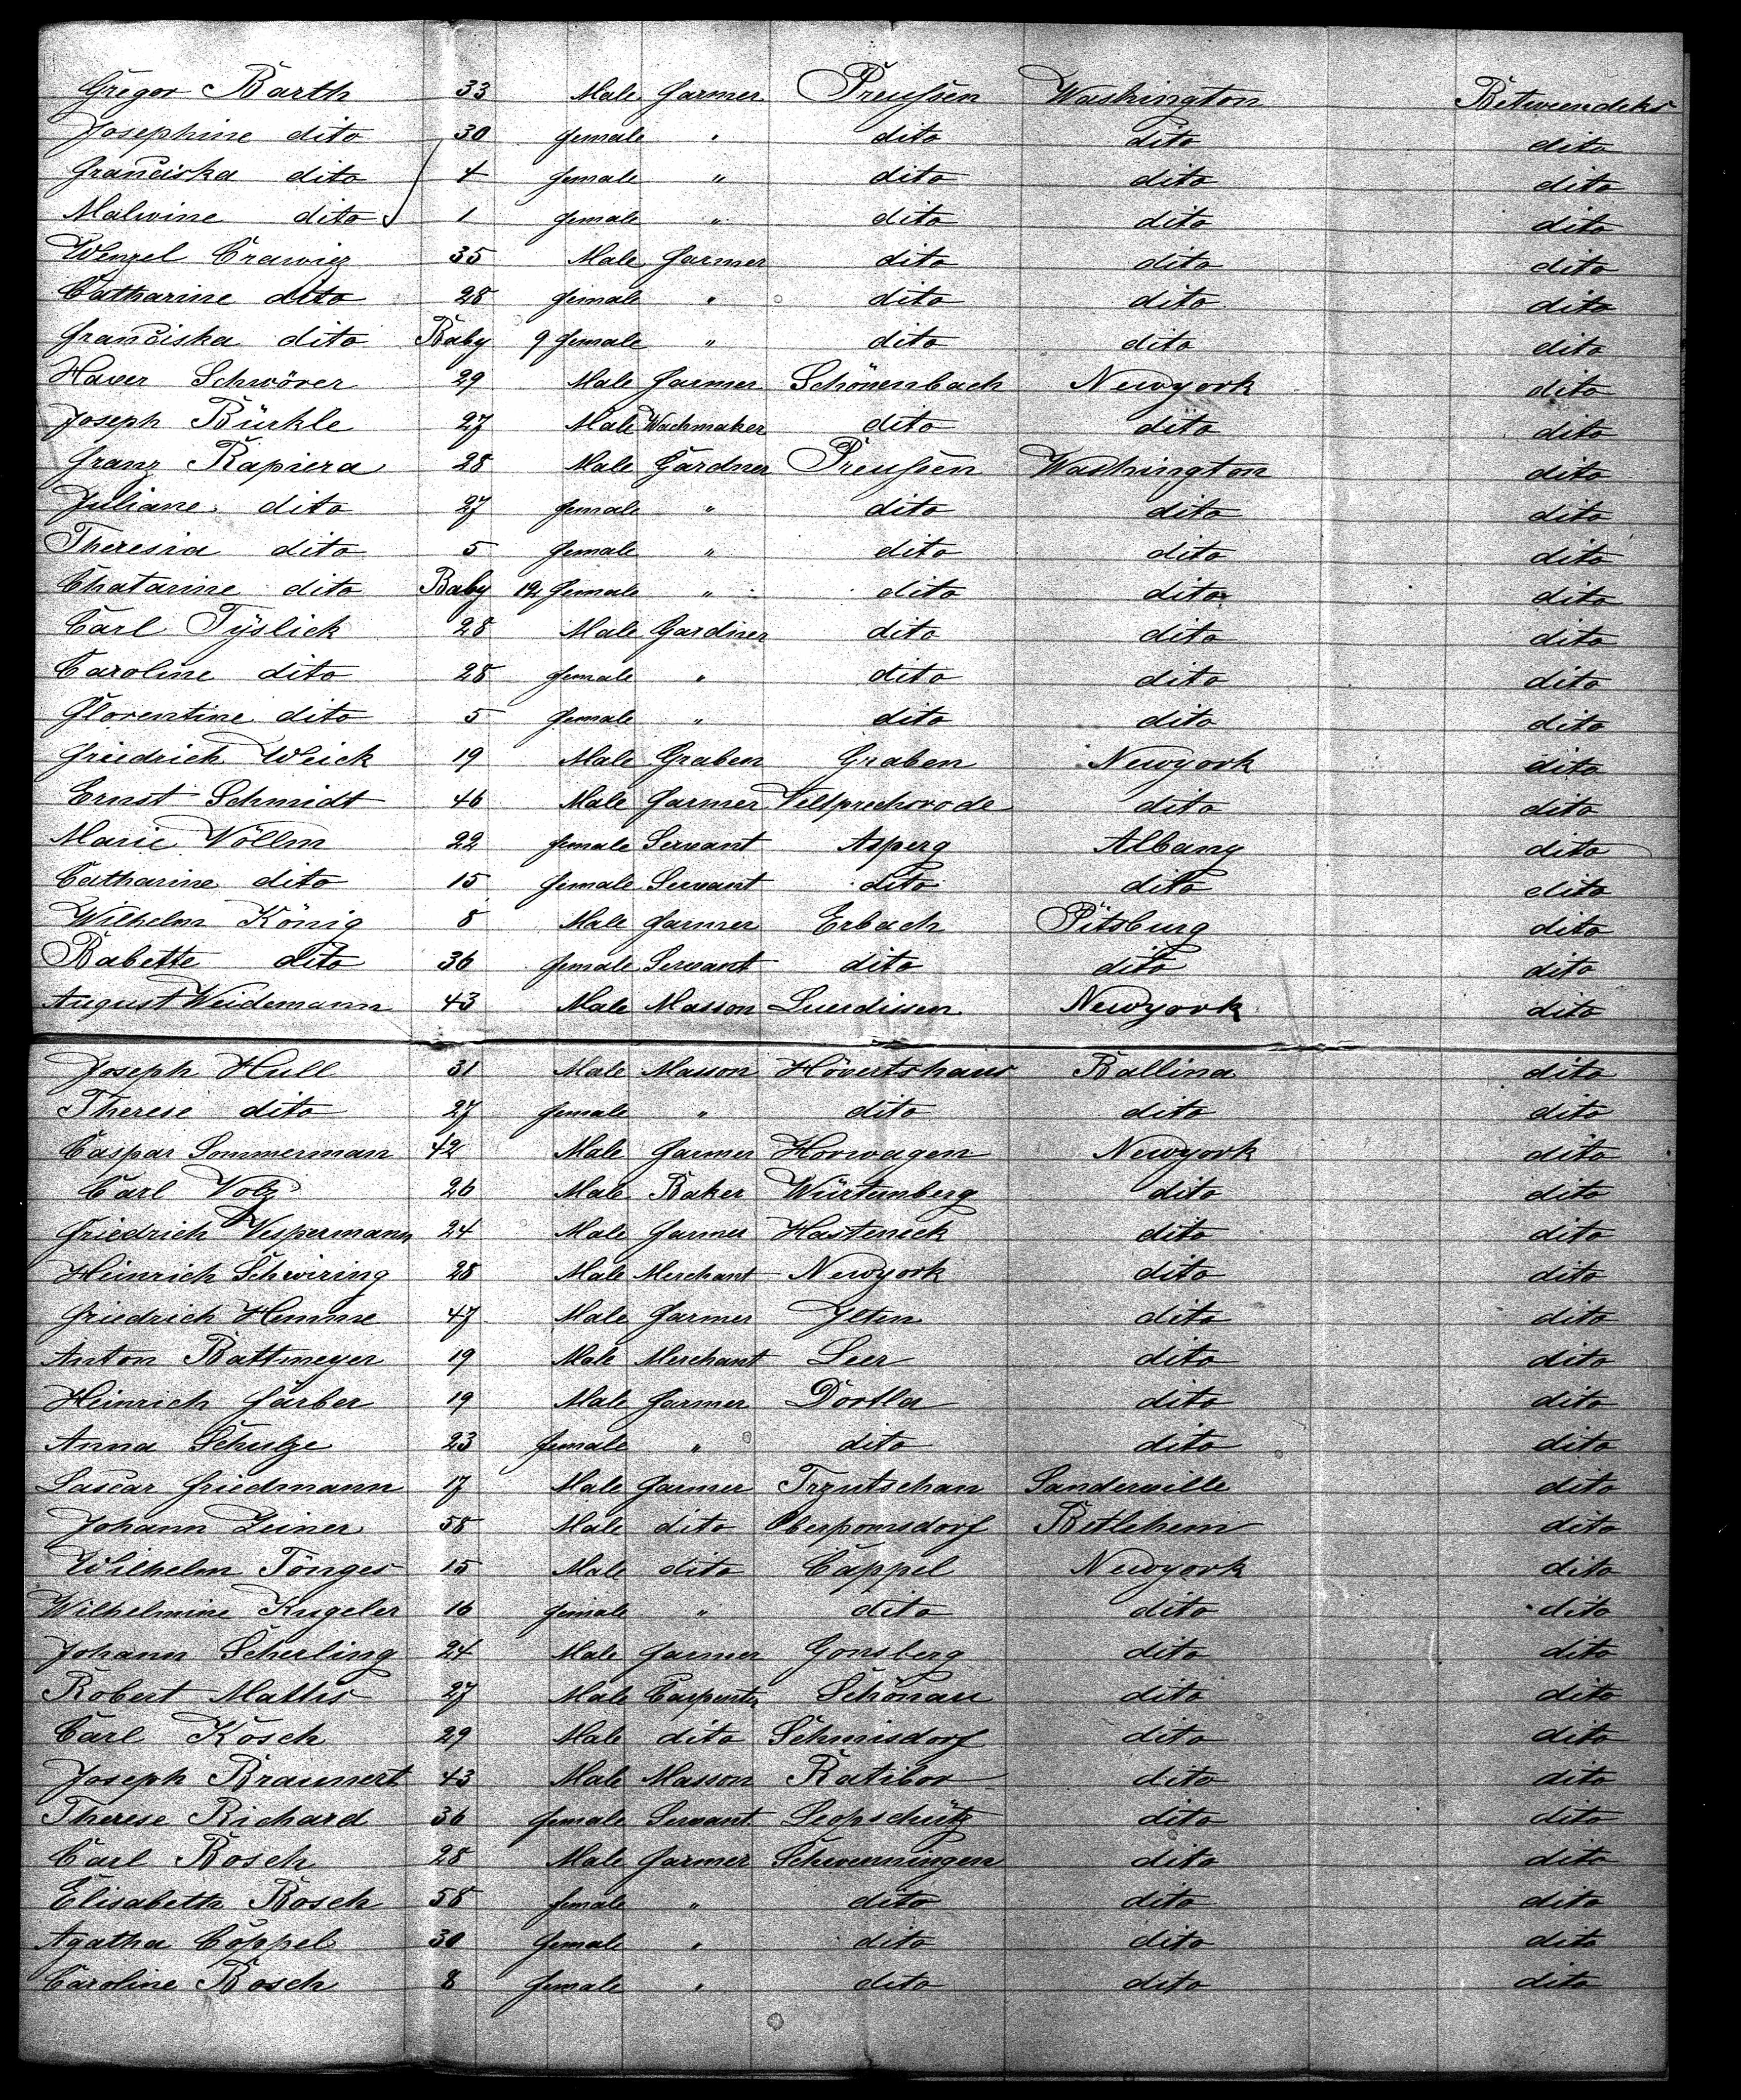 Gregor Barth 33 Male Farmer Preußen Washington Betweendeks
Josephine dito 30 female " dito dito dito
Franciska dito 4 female " dito dito dito
Malwine dito 1 female " dito dito dito
Wenzel Crawiez 35 Male Farmer dito dito dito
Catharine dito 28 female " dito dito dito
Franciska dito Baby 9 female " dito dito dito
Xaver Schwörer 29 Male Farmer Schönenbach Newyork dito
Joseph Bürkle 27 Male Wachmaker dito dito dito
Franz Kapiera 28 Male Gardner Preußen Washington dito
Juliane dito 27 female " dito dito dito
Theresia dito 5 female " dito dito dito
Chatarine dito Baby 12 female " dito dito dito
Carl Tÿslick 28 Male Gardner dito dito dito
Caroline dito 28 female " dito dito dito
Florentine dito 5 female " dito dito dito
Friedrich Weick 19 Male Graben Graben Newyork dito
Ernst Schmidt 46 Male Farmer dito dito
Marie Völlm 22 female Servant Asperg Albany dito
Catharine dito 15 female Servant dito dito dito
Wilhelm König 8 Male Farmer Erbach Pitsburg dito
Babette dito 36 female Servant dito dito dito
August Weidemann 43 Male Masson Luerdissen Newyork dito
Joseph Hull 31 Male Masson Hövertshaus Ballina dito
Therese dito 27 female " dito dito dito
Caspar Sommerman 42 Male Farmer Horwagen Newyork dito
Carl Volz 26 Male Baker Würtemberg dito dito
Friedrich Vespermann 24 Male Farmer Hastenick dito dito
Heinrich Schwiring 28 Male Merchant Newyork dito dito
Friedrich Hemme 47 Male Farmer Ilten dito dito
Anton Battmeyer 19 Male Merchant Leer dito dito
Heinrich Färber 19 Male Farmer Dortla dito dito
Anna Schulze 23 female " dito dito dito
Lascar Friedmann 17 Male Farmer Trzutschan Sanderville dito
Johann Zeiner 58 Male dito Oberpomsdorf Betlehem dito
Wilhelm Tönges 15 Male dito Cappel Newyork dito
Wilhelmine Kugeler 16 female " dito dito dito
Johann Scherling 24 Male Farmer Gonsberg dito dito
Robert Mattis 27 Male Carpenter Schönau dito dito
Carl Kösch 29 Male dito Schmisdorf dito dito
Joseph Braunert 43 Male Masson Ratibor dito dito
Therese Richard 36 female Servant Leopschütz dito dito
Carl Bosch 28 Male Farmer Schwenningen dito dito
Elisabeth Bosch 58 female " dito dito dito
Agatha Göppel 30 female " dito dito dito
Caroline Bosch 8 female " dito dito dito